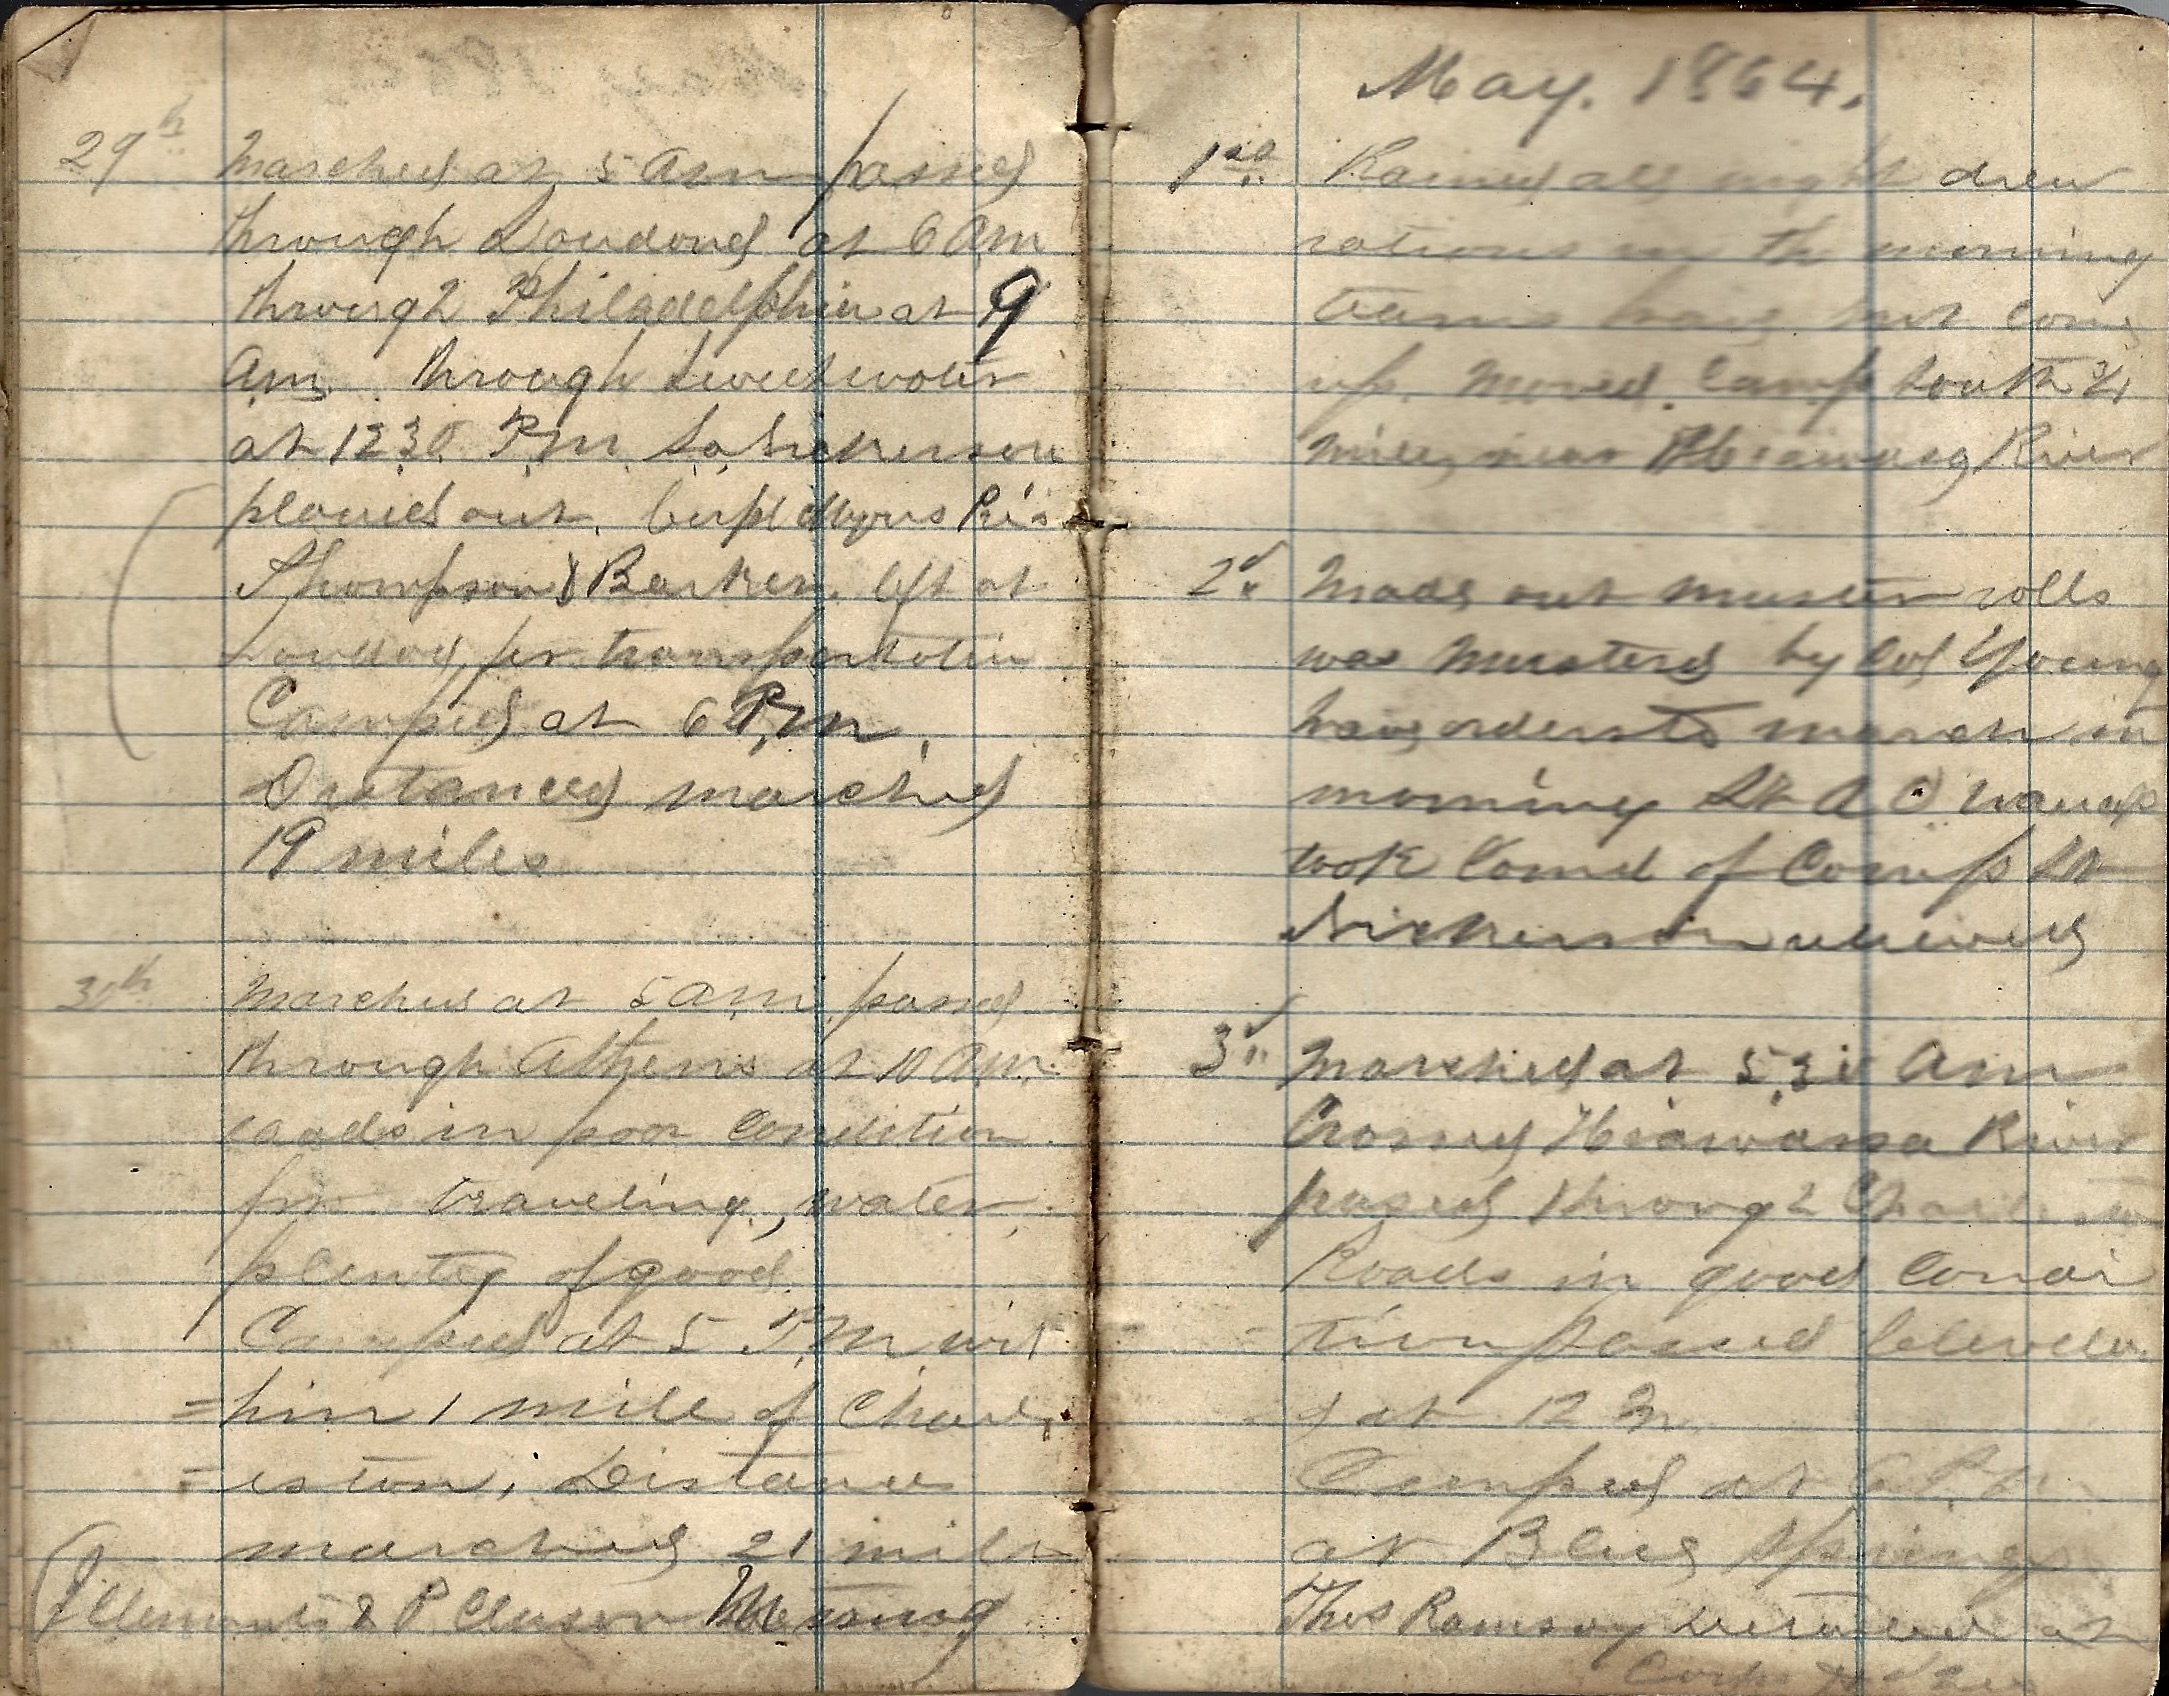 29th Marched at 5 am passed
through Loudoud at 6 am
through Philadelphia at 9
am through Sweetwater
at 12.30 P.m. Lt Dickerson
played out. Corpl Myers
Thompson & Barker left at
Loudoud for transportation
Camped at 6 P.m.
Distanced marched
19 miles
30th Marched at 5 am passed
through Athens at 10 am
roads in poor condition
for traveling, water
plenty of good.
Camped at 5 P.m. wit
=hin 1 mile of Charl
=eston. Distance
marched 21 miles
Clements & P. Cluson Missing
May. 1864.
1st Rained all night drew
rations in the morning
teams have just come
up. Moved Camp South 3/4
mile near Hiawassa River
2d Made out muster rolls
was mustered by Col Young
have orders to march in
morning Lt A O
took Comd of Comp Lt
Dickerson relieved
3d Marched at 5.30 am
Crossed Hiawassa River
passed through Charleston
Roads in good condi
tion passed Clevela
d at 12 M.
Camped at 6 P.m
at Blue Springs
Thos Ramsay detailed at
Corps